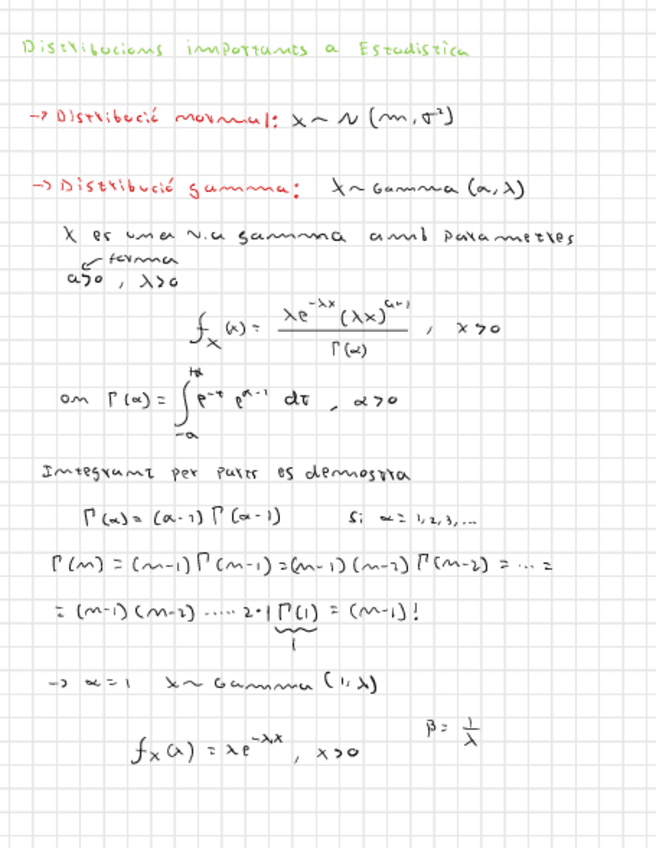 Distribucions importants a Estadística
→ Distribució normal: X ~ N (m, σ²)
→ Distribució gamma: X ~ Gamma (α, λ)
X es una v.a gamma amb parametres
← forma
α>0 , λ>0
f_X (x) = λe^{-λx} (λx)^{α-1} / Γ(α) , x > 0
on Γ(α) = ∫_{-α}^{+∞} e^{-t} e^{α-1} dt , α > 0
Integrant per parts es demostra
Γ(α) = (α-1) Γ(α-1) Si α = 1, 2, 3, ...
Γ(m) = (m-1) Γ(m-1) = (m-1) (m-2) Γ(m-2) = ... =
= (m-1) (m-2) ..... 2·1 Γ(1) = (m-1)!
1
→ α = 1 X ~ Gamma (1, λ)
β = 1/λ
f_X (x) = λe^{-λx} , x > 0